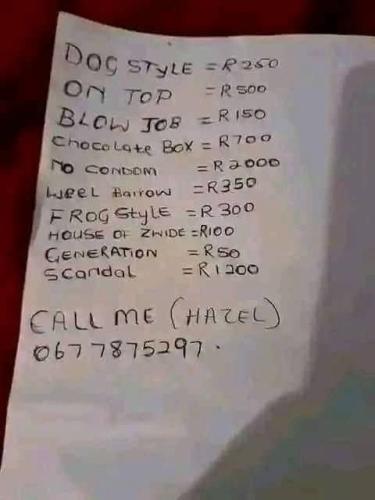 DOG STYLE = R250
ON TOP = R500
BLOW JOB = R150
Chocolate Box = R700
NO CONDOM = R2000
Weel Barrow = R350
FROG Style = R300
HOUSE OF ZWIDE = R100
GENERATION = R50
Scandal = R1200
CALL ME (HAZEL)
0677875297.